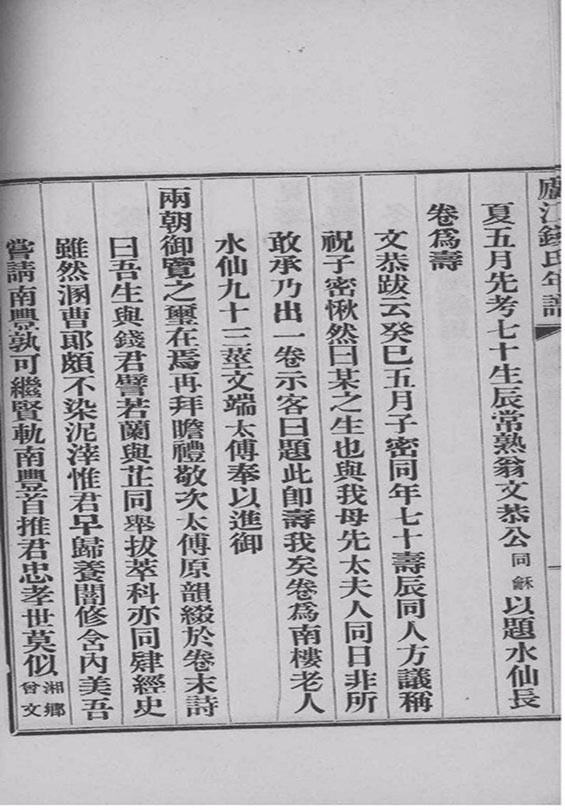 廬江錢氏年譜
夏五月先考七十生辰常熟翁文恭公同龢以題水仙長
卷為壽
文恭跋云癸巳五月子密同年七十壽辰同人方議稱
祝子密愀然曰某之生也與我母先太夫人同日非所
敢承乃出一卷示客曰題此卽壽我矣卷為南樓老人
水仙九十三莖文端太傅奉以進御
兩朝御覽之璽在焉再拜瞻禮敬次太傅原韻綴於卷末詩
曰吾生與錢君譬若蘭與芷同舉拔萃科亦同肄經史
雖然溷曹郎頗不染泥滓惟君早歸養闇修含內美吾
嘗請南豐孰可繼賢軌南豐首推君忠孝世莫似湘鄉曾文